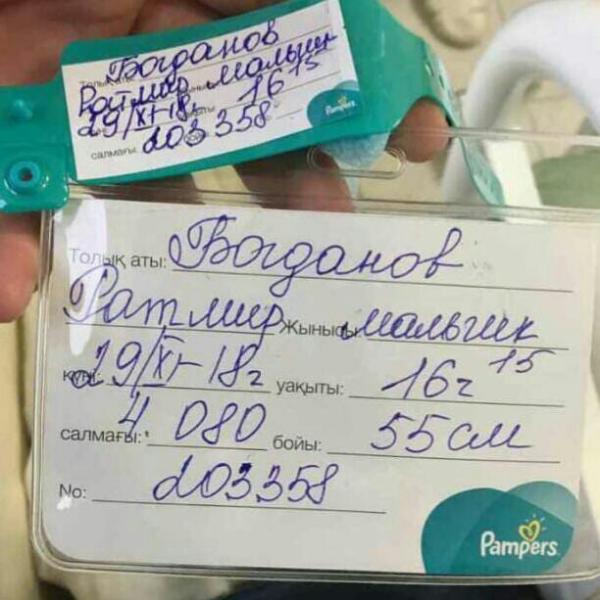 Богданов
Ратмир мальчик
29/XI-18г 16 15
салмағы: 203358
Pampers
Толық аты: Богданов
Ратмир Жынысы: мальчик
күні: 29/XI-18г уақыты: 16ч 15
салмағы: 4 080 бойы: 55 см
No: 203358
Pampers